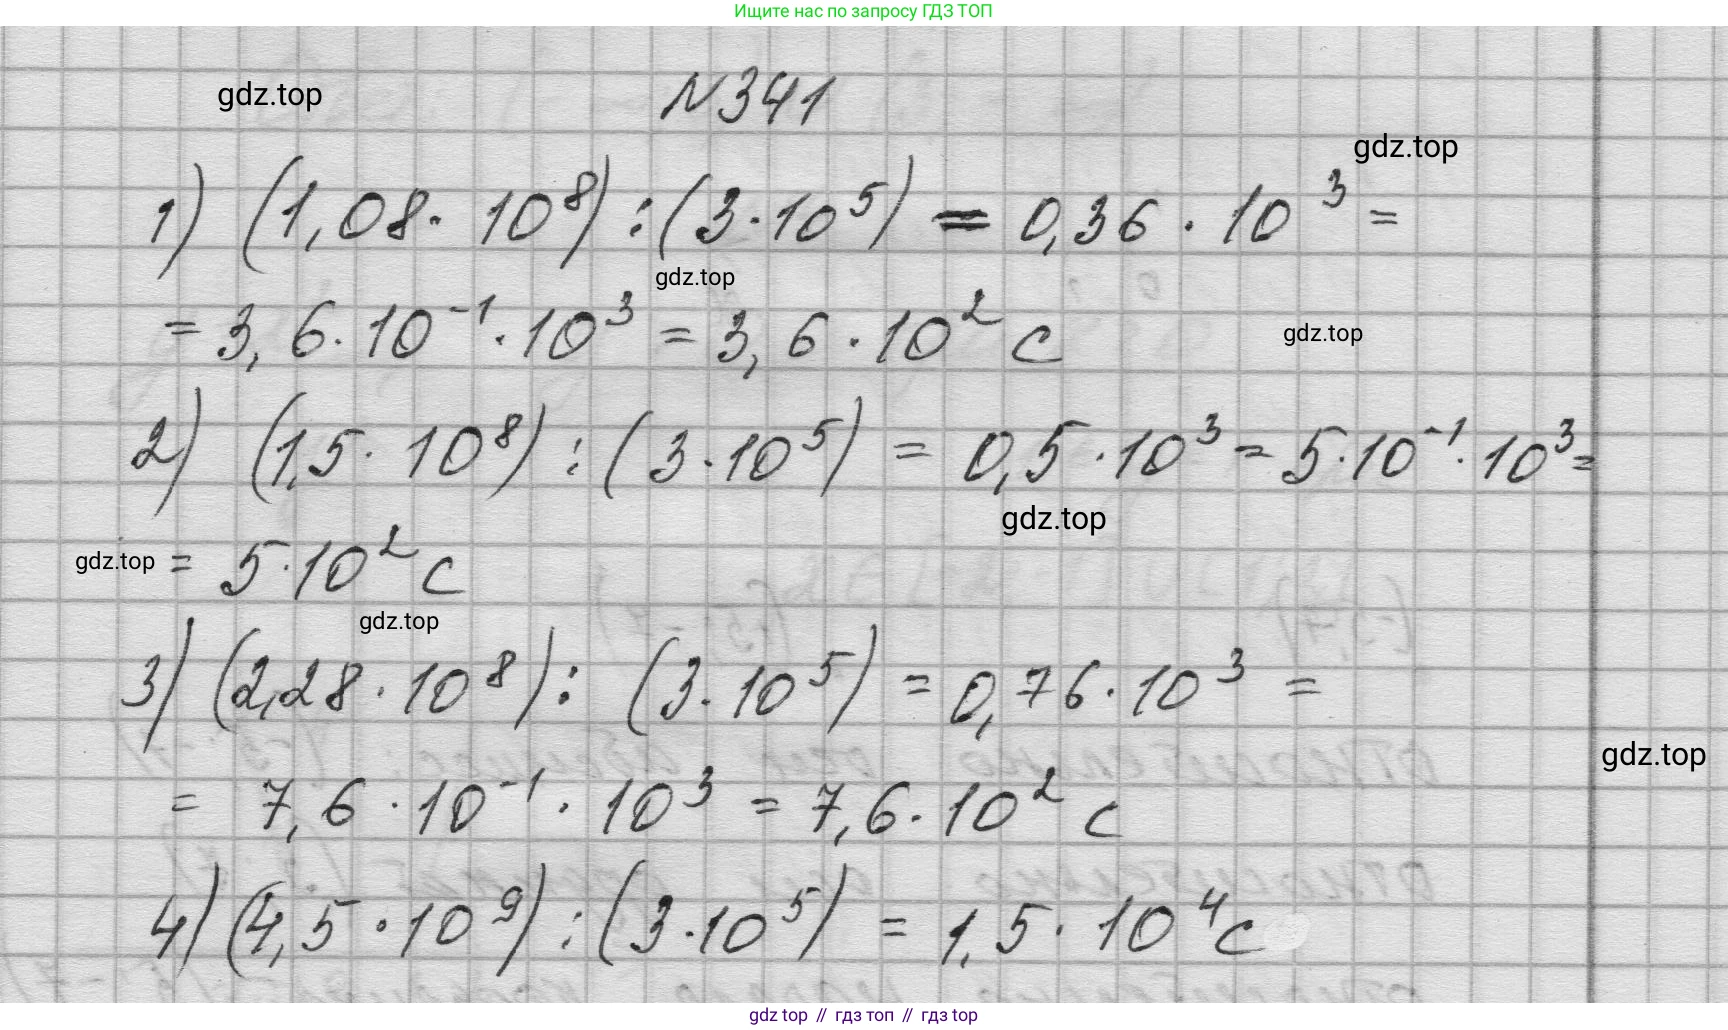 Ищите нас по запросу ГДЗ ТОП
gdz.top
N341
gdz.top
1) (1,08 · 10⁸) : (3 · 10⁵) = 0,36 · 10³ =
gdz.top
= 3,6 · 10⁻¹ · 10³ = 3,6 · 10² с
gdz.top
2) (1,5 · 10⁸) : (3 · 10⁵) = 0,5 · 10³ = 5 · 10⁻¹ · 10³ =
gdz.top
gdz.top
= 5 · 10² с
gdz.top
3) (2,28 · 10⁸) : (3 · 10⁵) = 0,76 · 10³ =
gdz.top
= 7,6 · 10⁻¹ · 10³ = 7,6 · 10² с
4) (4,5 · 10⁹) : (3 · 10⁵) = 1,5 · 10⁴ с
gdz top // гдз топ // гдз top